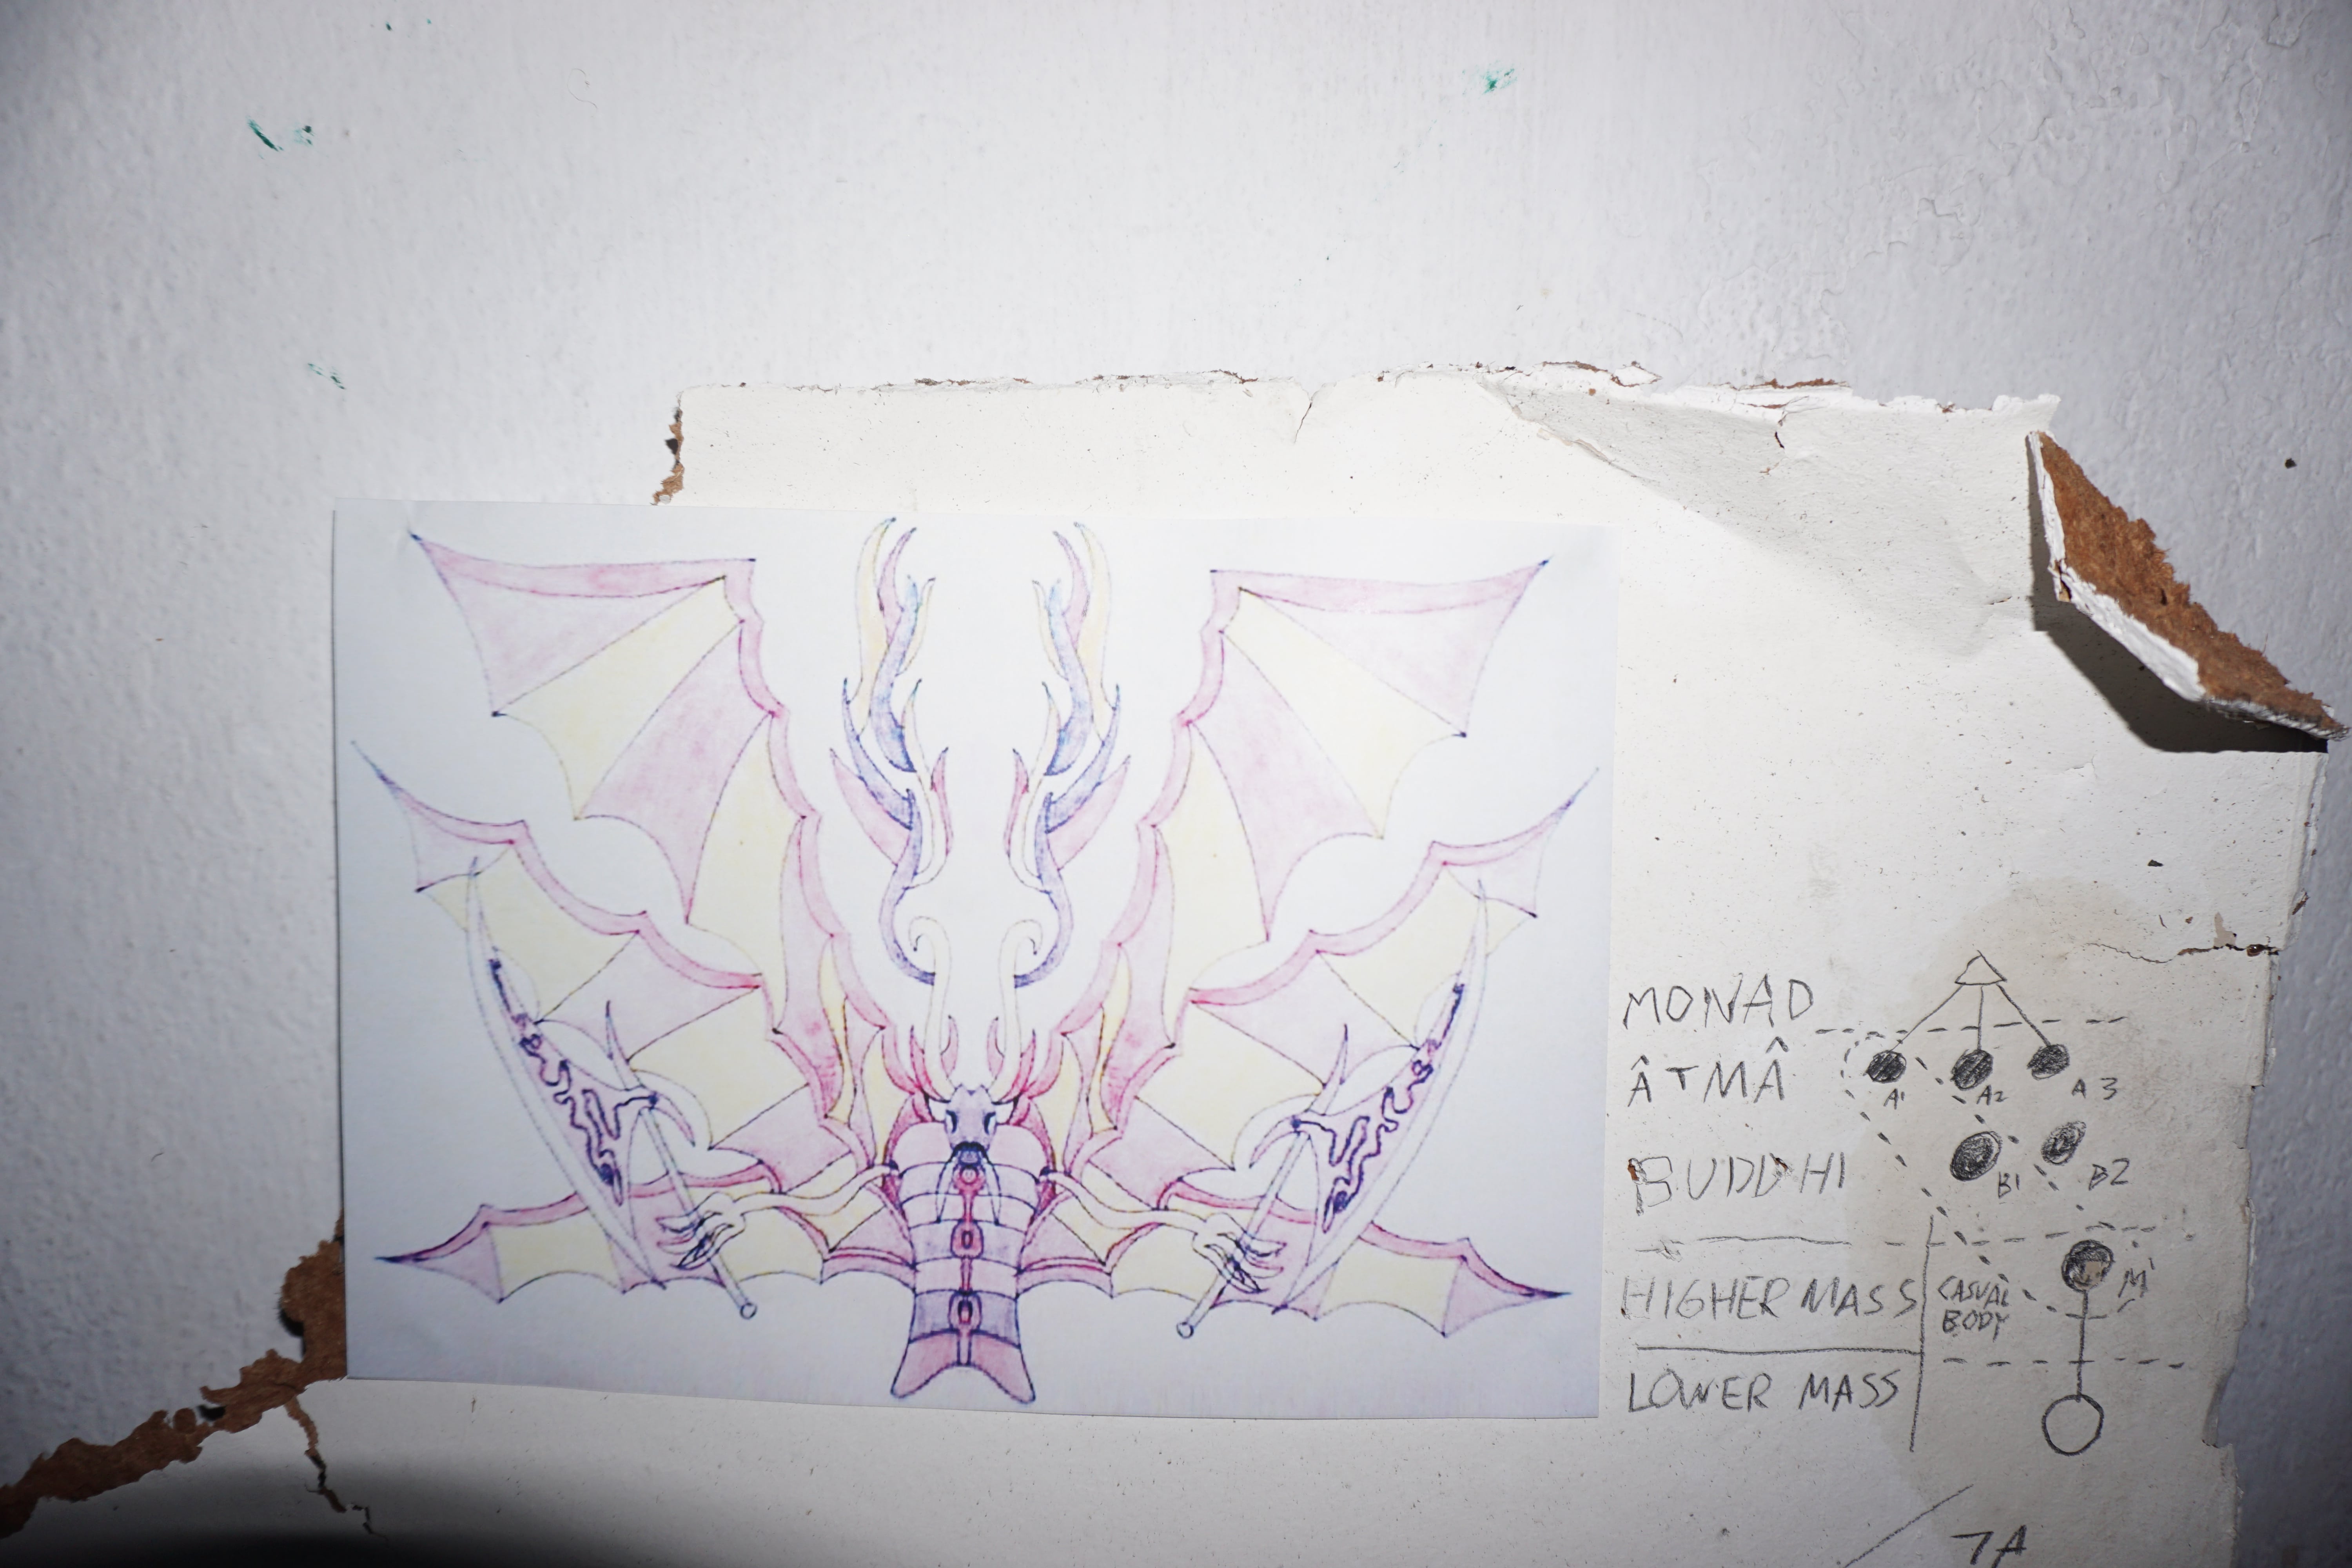 MONAD
ÂTMÂ
A1 A2 A3
BUDDHI
B1 B2
HIGHER MASS
CASUAL
BODY
M1
LOWER MASS
7A